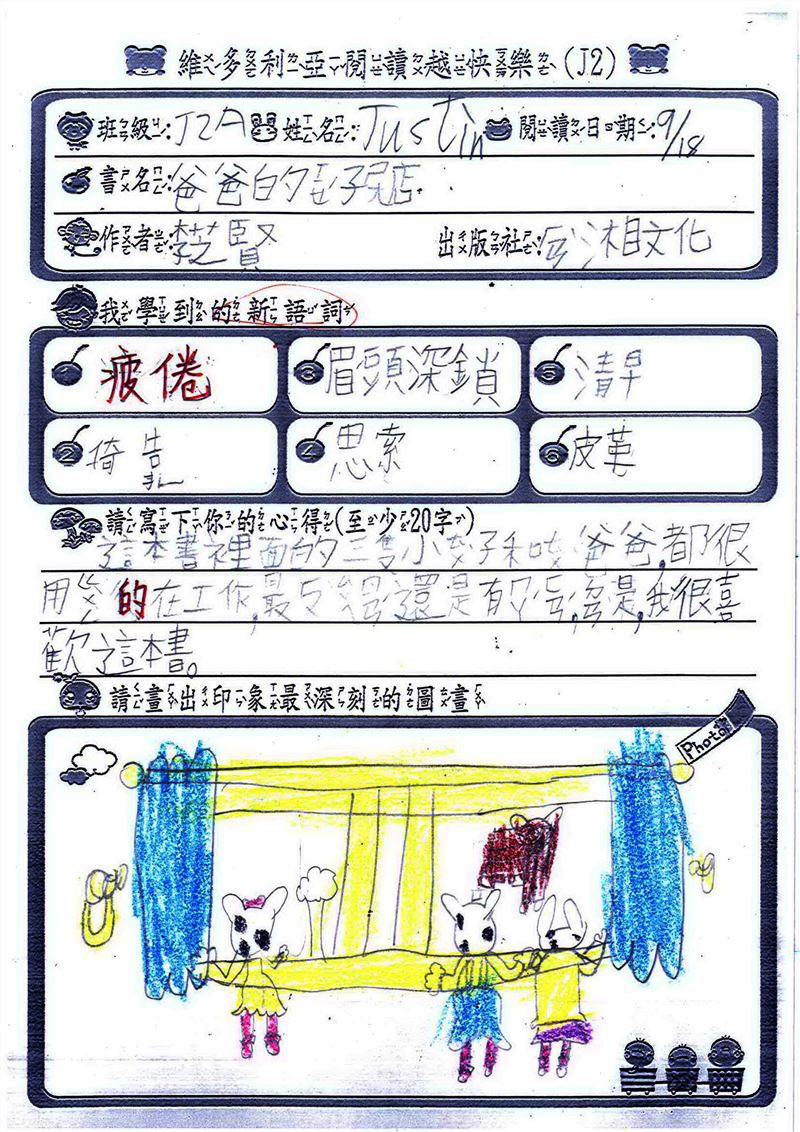 維多利亞閱讀越快樂(J2)
班級:J2A 姓名:Justin 閱讀日期:9/18
書名:爸爸的ㄒㄧㄝˊ子店
作者:李芝賢 出版社:
我學到的新語詞
1 疲倦 3 眉頭深鎖 5 清早
2 倚靠 4 思索 6 皮革
請寫下你的心得(至少20字)
這本書裡面的三隻小 子和 爸爸,都很
用 的在工作,最 還是有 ,可是,我很喜
歡這本書。
請畫出印象最深刻的圖畫
Photo